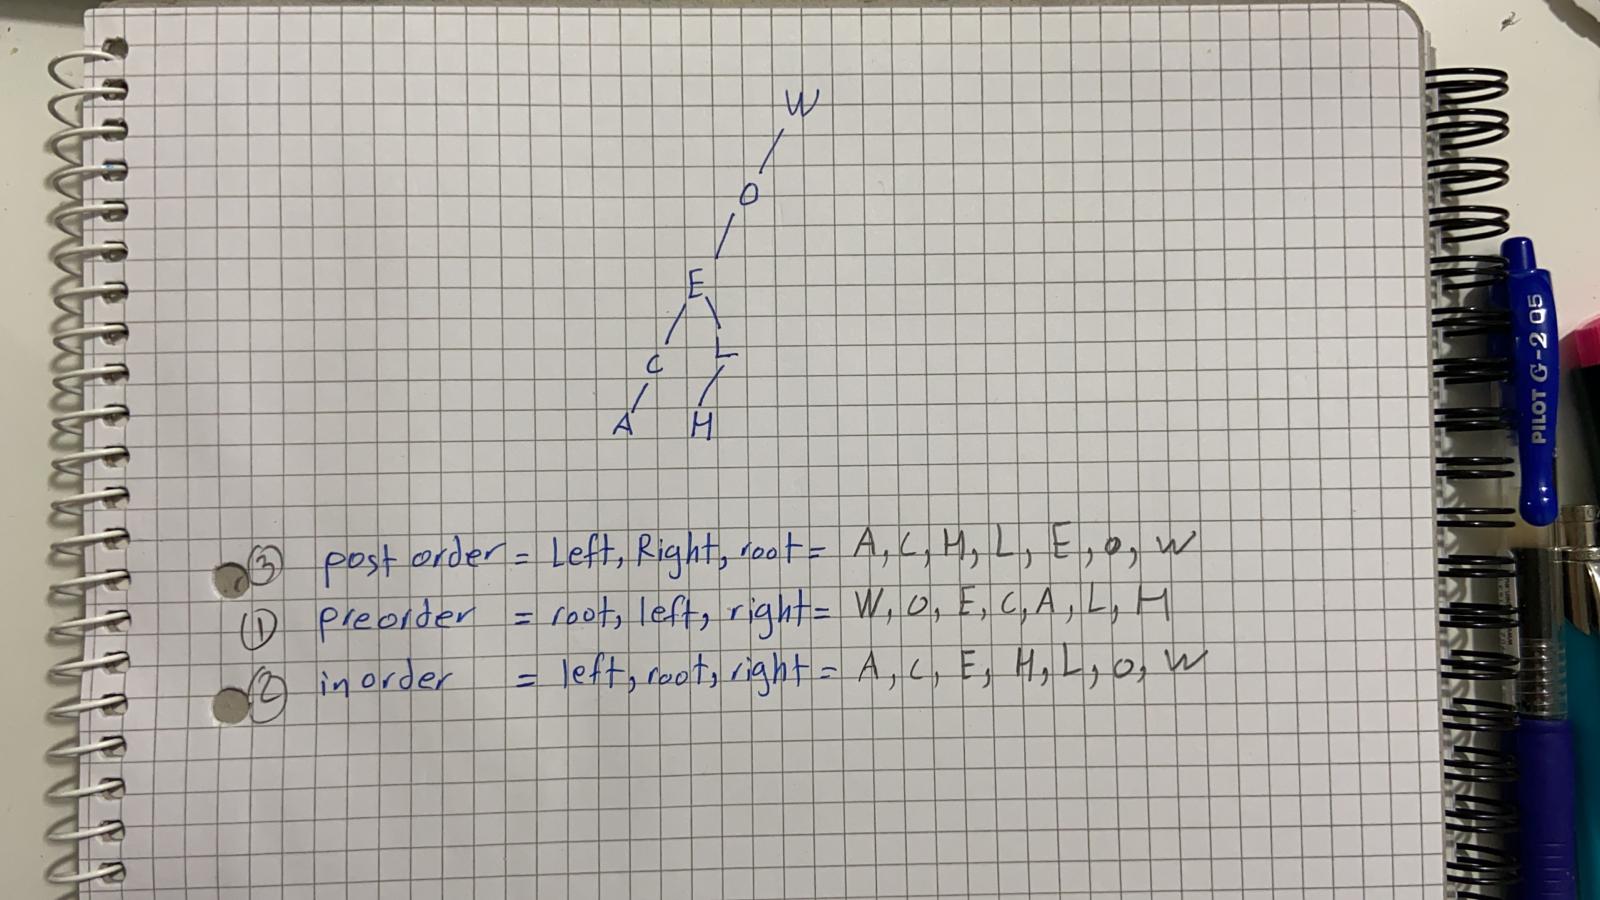 W
O
E
C L
A H
③ post order = Left, Right, root = A, C, H, L, E, o, W
① preorder = root, left, right = W, O, E, C, A, L, H
② in order = left, root, right = A, C, E, H, L, o, W
PILOT G-2 05